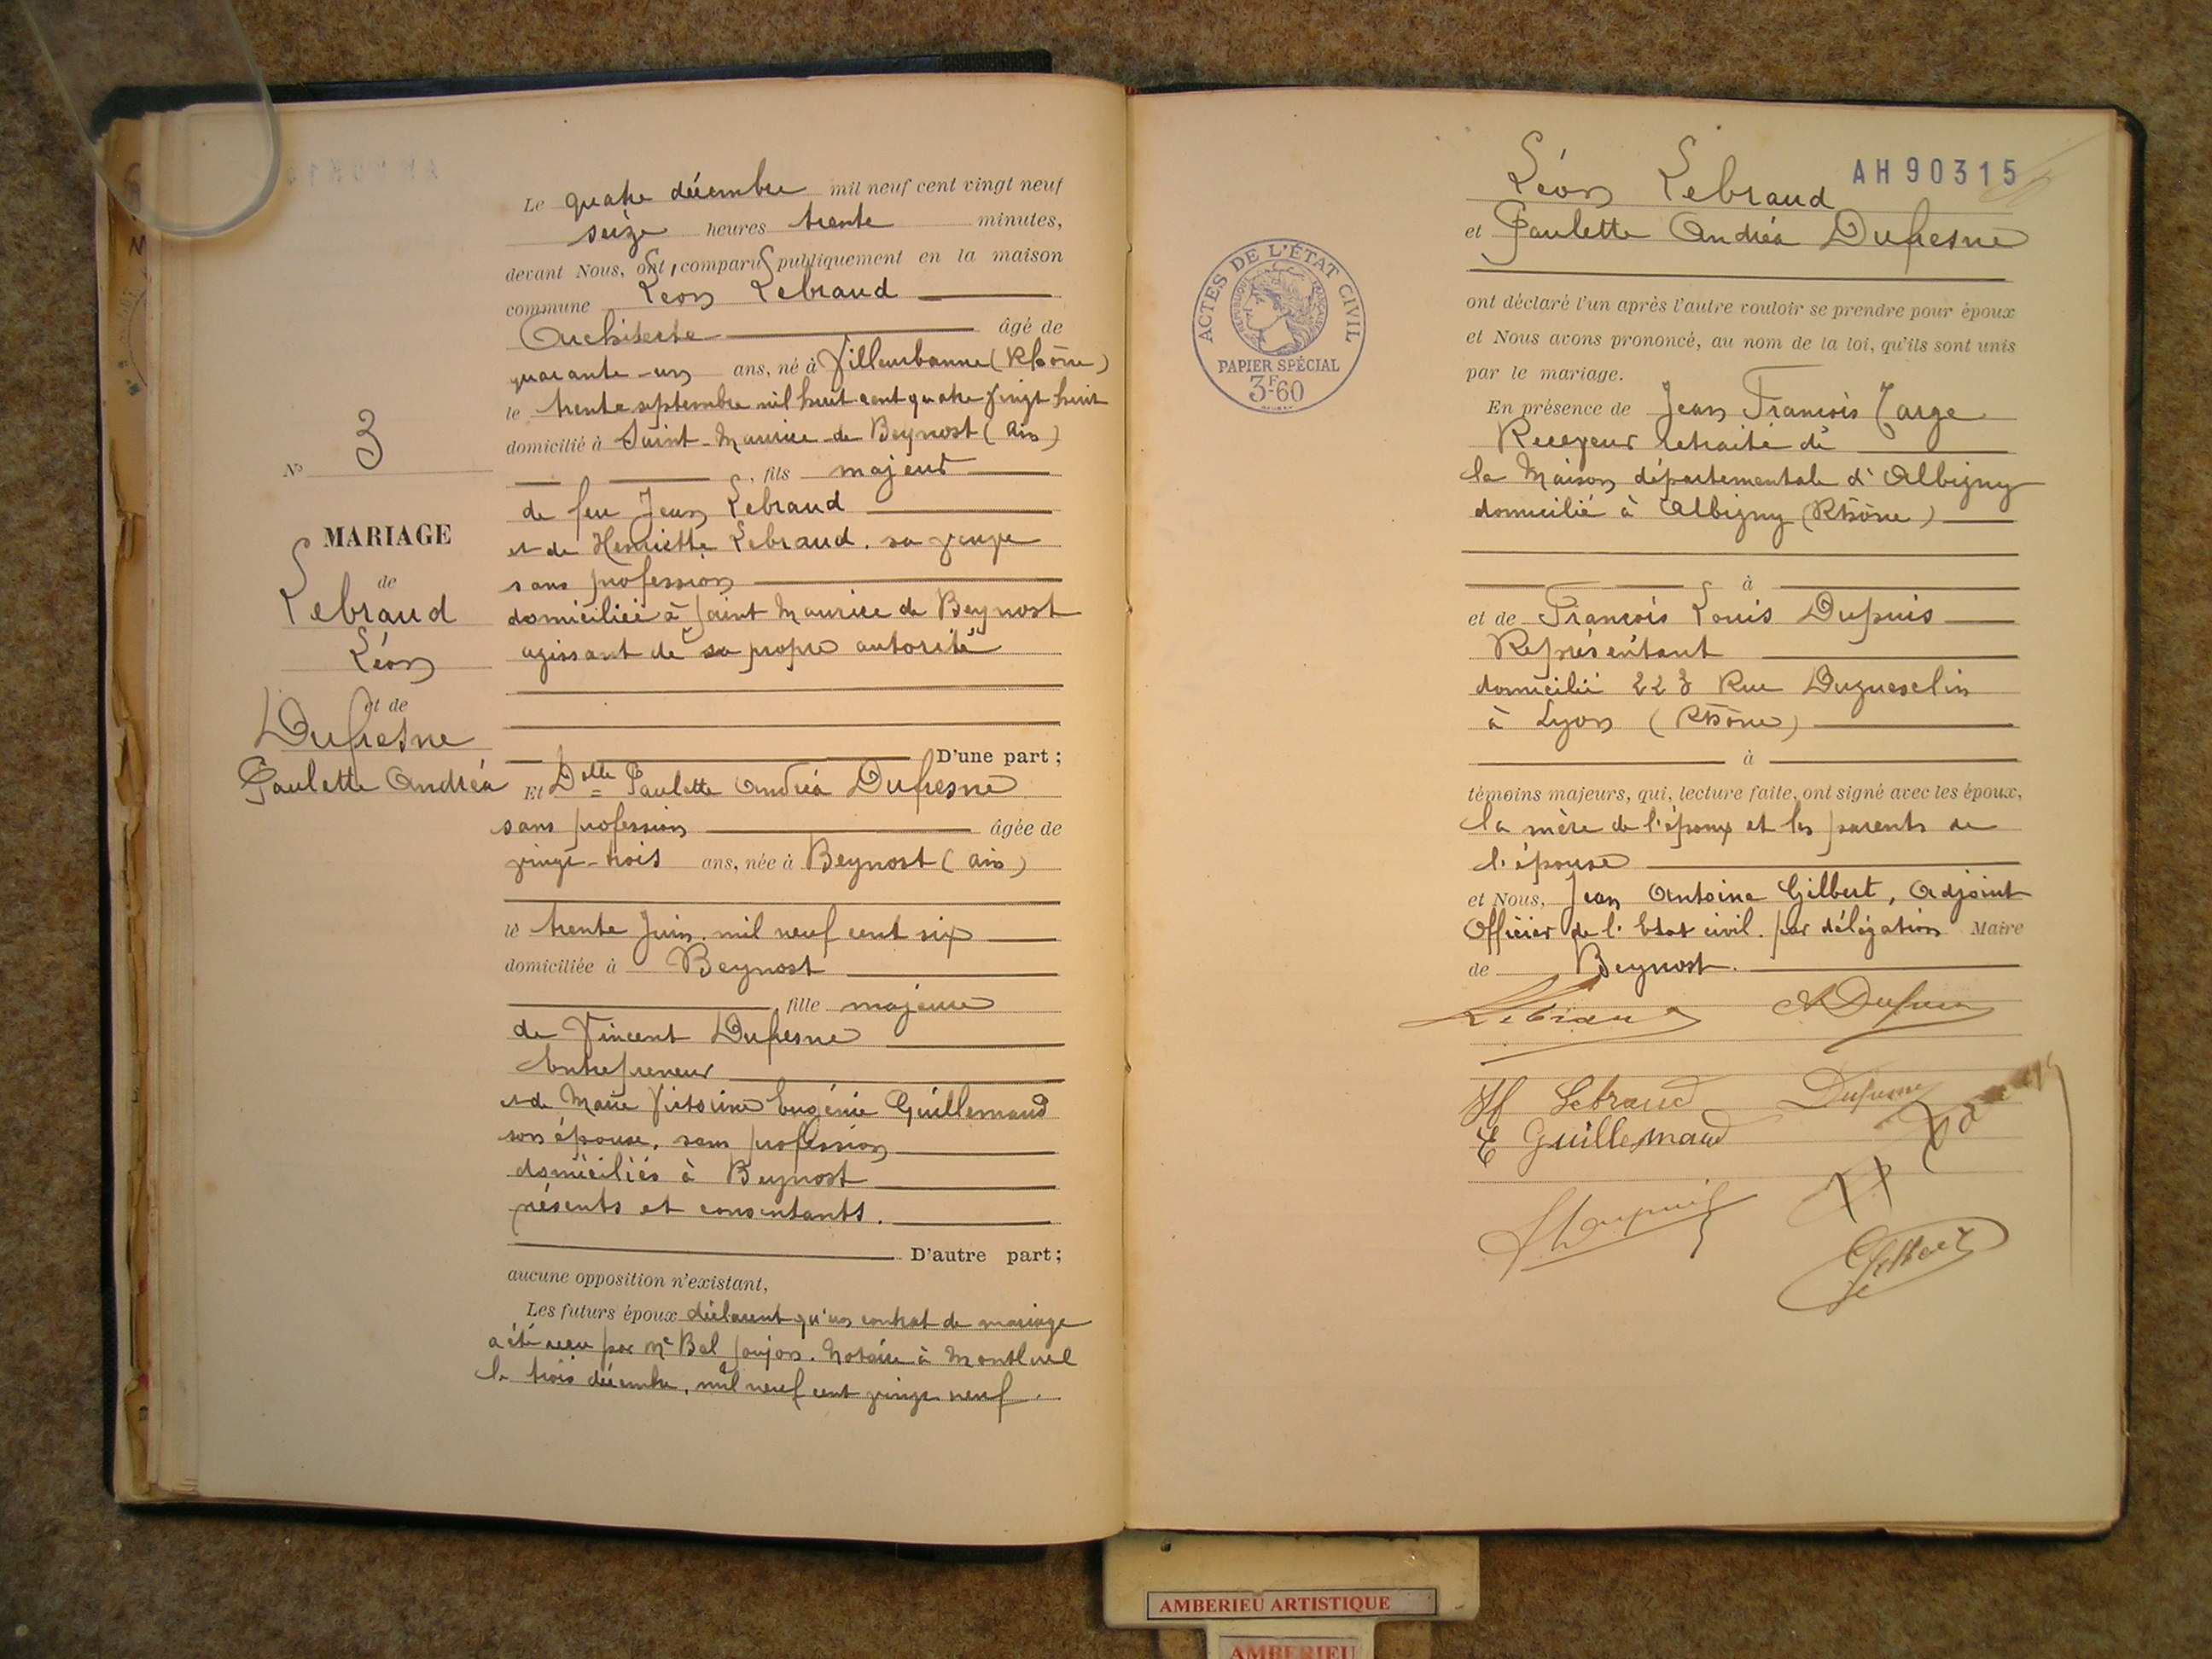 Le quatre décembre mil neuf cent vingt neuf
seize heures trente minutes,
devant Nous, ont comparu publiquement en la maison
commune Léon Lebraud
Architecte âgé de
quarante-un ans, né à Villeurbanne (Rhône)
le trente septembre mil huit cent quatre vingt huit
domicilié à Saint-Maurice-de Beynost (Ain)
, fils majeur
de feu Jean Lebraud
et de Henriette Lebraud, sa veuve
sans profession
domiciliée à Saint Maurice de Beynost
agissant de sa propre autorité
D'une part ;
Nº 3
MARIAGE
de
Lebraud
Léon
et de
Dufresne
Paulette Andréa
Et Delle Paulette Andréa Dufresne
sans profession âgée de
vingt-trois ans, née à Beynost (Ain)
le trente Juin mil neuf cent six
domiciliée à Beynost
fille majeure
de Vincent Dufresne
Entrepreneur
et de Marie Victorine Eugénie Guillemaud
son épouse, sans profession
domiciliés à Beynost
présents et consentants.
D'autre part ;
aucune opposition n'existant,
Les futurs époux déclarent qu'un contrat de mariage
a été reçu par Me Bal Notaire à Montluel
le trois décembre, mil neuf cent vingt neuf.
AH 90315
Léon Lebraud
et Paulette Andréa Dufresne
ACTES DE L'ÉTAT CIVIL
RÉPUBLIQUE FRANÇAISE
PAPIER SPÉCIAL
3F60
ont déclaré l'un après l'autre vouloir se prendre pour époux
et Nous avons prononcé, au nom de la loi, qu'ils sont unis
par le mariage.
En présence de Jean François Targe
Receveur retraité de
la Maison départementale d'Albigny
domicilié à Albigny (Rhône)
à
et de François Louis Dupuis
Représentant
domicilié 223 Rue Duguesclin
à Lyon (Rhône)
à
témoins majeurs, qui, lecture faite, ont signé avec les époux,
la mère de l'époux et les parents de
l'épouse
et Nous, Jean Antoine Gilbert, Adjoint
Officier de l'Etat civil par délégation Maire
de Beynost.
Lebraud A Dufresne
H Lebraud Dufresne
E Guillemaud
Dupuis
Gilbert
AMBERIEU ARTISTIQUE
AMBERIEU